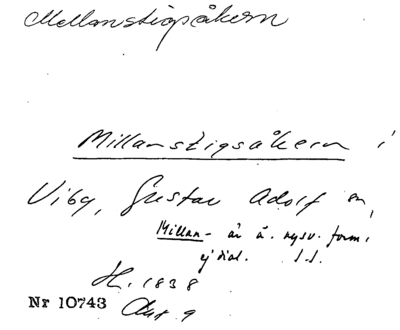 Mellanstigsåkern
Millanstigsåkern i
Viby, Gustav Adolf sn,
Millan- är ä. nysv. form,
ej dial. I.I.
H. 1838
Akt 9
Nr 10743